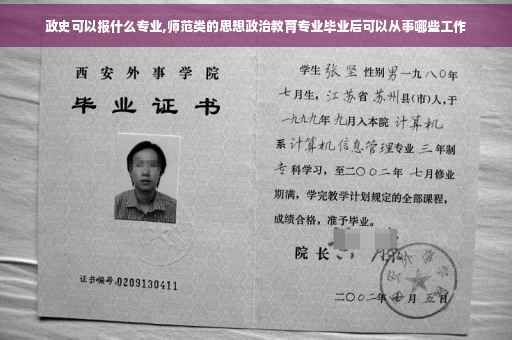 政史可以报什么专业,师范类的思想政治教育专业毕业后可以从事哪些工作
西安外事学院
毕业证书
证书编号:0209130411
学生 张坚 性别男 一九八〇年
七月生, 江苏省 苏州县(市)人,于
一九九九年九月入本院 计算机
系 计算机信息管理专业 三 年制
专科学习,至二〇〇二年 七月修业
期满,学完教学计划规定的全部课程,
成绩合格,准予毕业。
院长
二〇〇二年 月 五日